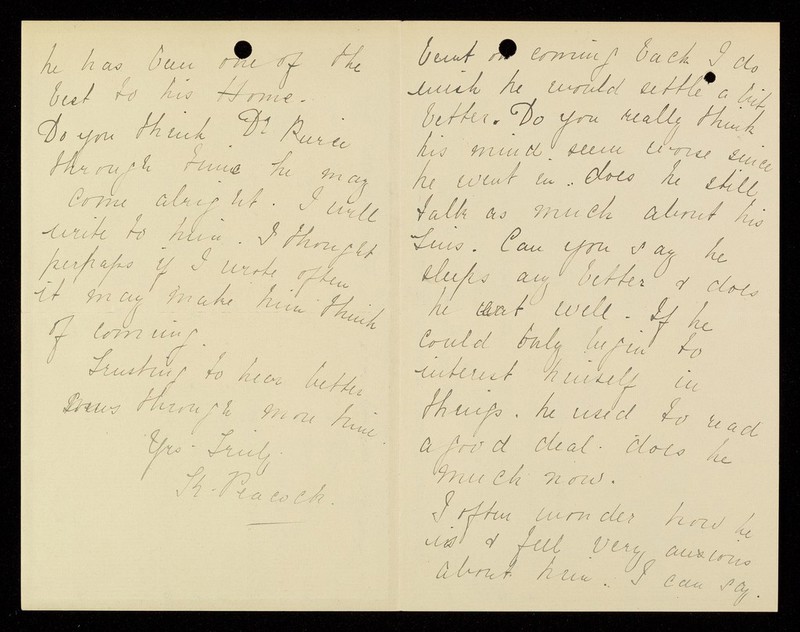 he has been one of the
best to his Home.
Do you think Dr
through time he may
come alright. I will
write to him. I thought
perhaps if I wrote often
it may make him think
of coming.
Trusting to hear better
news through more time.
Yrs Truly
K. Peacock.
bent on coming back I do
wish he would settle a bit
better. Do you really think
his mind seem worse since
he went in. does he still
talk as much about his
Sins. Can you say he
sleeps any better & does
he eat well. If he
could only begin to
interest himself in
things. he used to read
a good deal. does he
much now.
I often wonder how he
is & feel very anxious
about him. I can say.